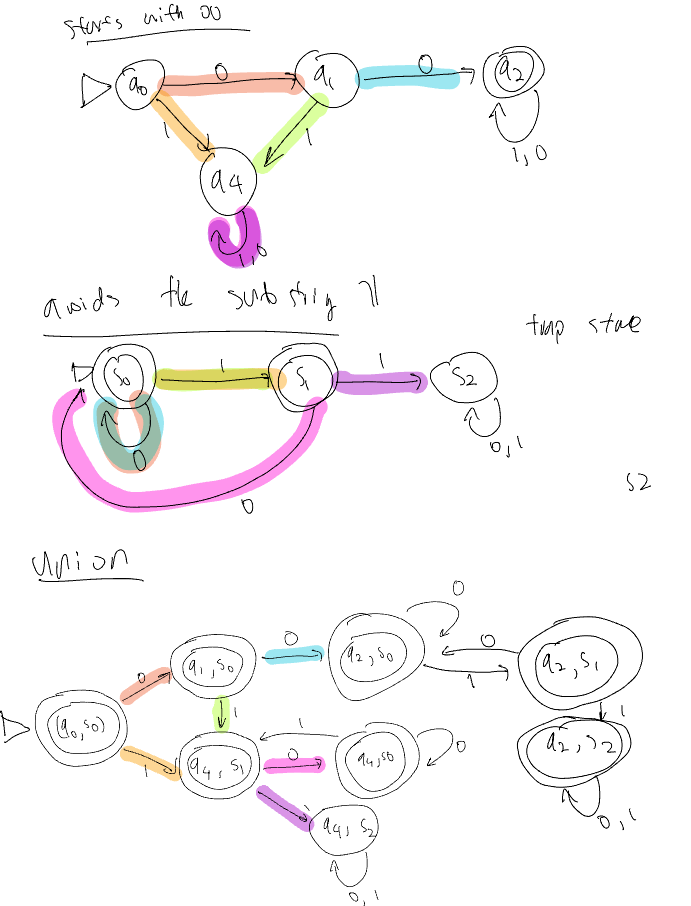 starts with 00
q0 0 q1 0 q2
1 1 1,0
q4
1,0
avoids the substring 11
trap state
S0 1 S1 1 S2
0 0,1
0
S2
union
0
q1, S0 0 q2, S0 0 q2, S1
0 1
(q0, S0) 1 1
1 q4, S1 1 0 q4, S0 0 q2, S2
1 q4, S2 0,1
0,1